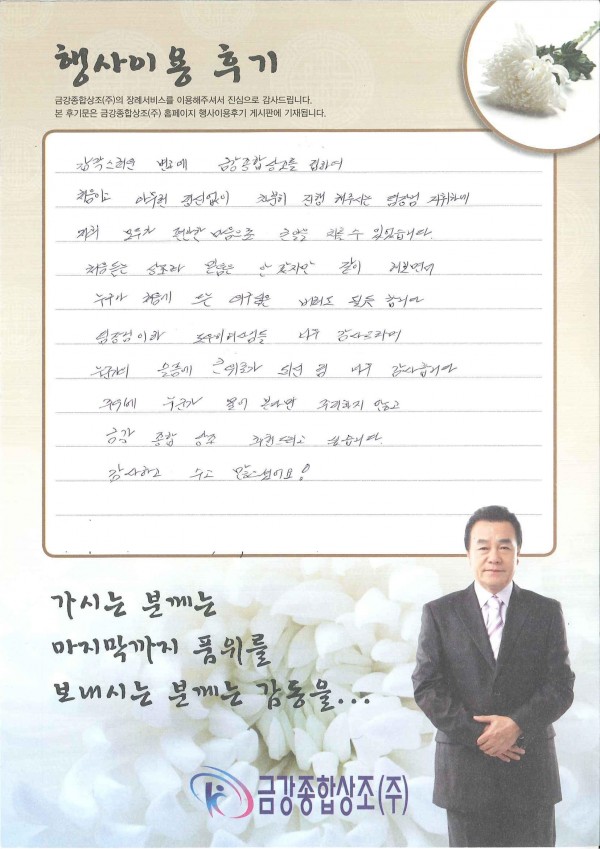 행사이용 후기
금강종합상조(주)의 장례서비스를 이용해주셔서 진심으로 감사드립니다.
본 후기문은 금강종합상조(주) 홈페이지 행사이용후기 게시판에 기재됩니다.
갑작스러운 변고에 금강종합상조를 접하여
처음이고 아무런 정신없이 차분히 진행 해주시는 팀장님 지휘하에
저희 모두가 편안한 마음으로 큰일을 치를 수 있었습니다.
처음듣는 상조라 믿음은 안 갔지만 같이 해보면서
누구나 처음기 는 버려도 될듯 합니다
팀장님이하 도우미여사님들 너무 감사드리며
누군가의 슬픔에 큰위로가 되신 점 너무 감사합니다
주위에 누군가 물어 본다면 주저하지 않고
금강 종합 상조 추천드리고 싶습니다.
감사하고 수고 많으셨어요!
가시는 분께는
마지막까지 품위를
보내시는 분께는 감동을...
금강종합상조(주)